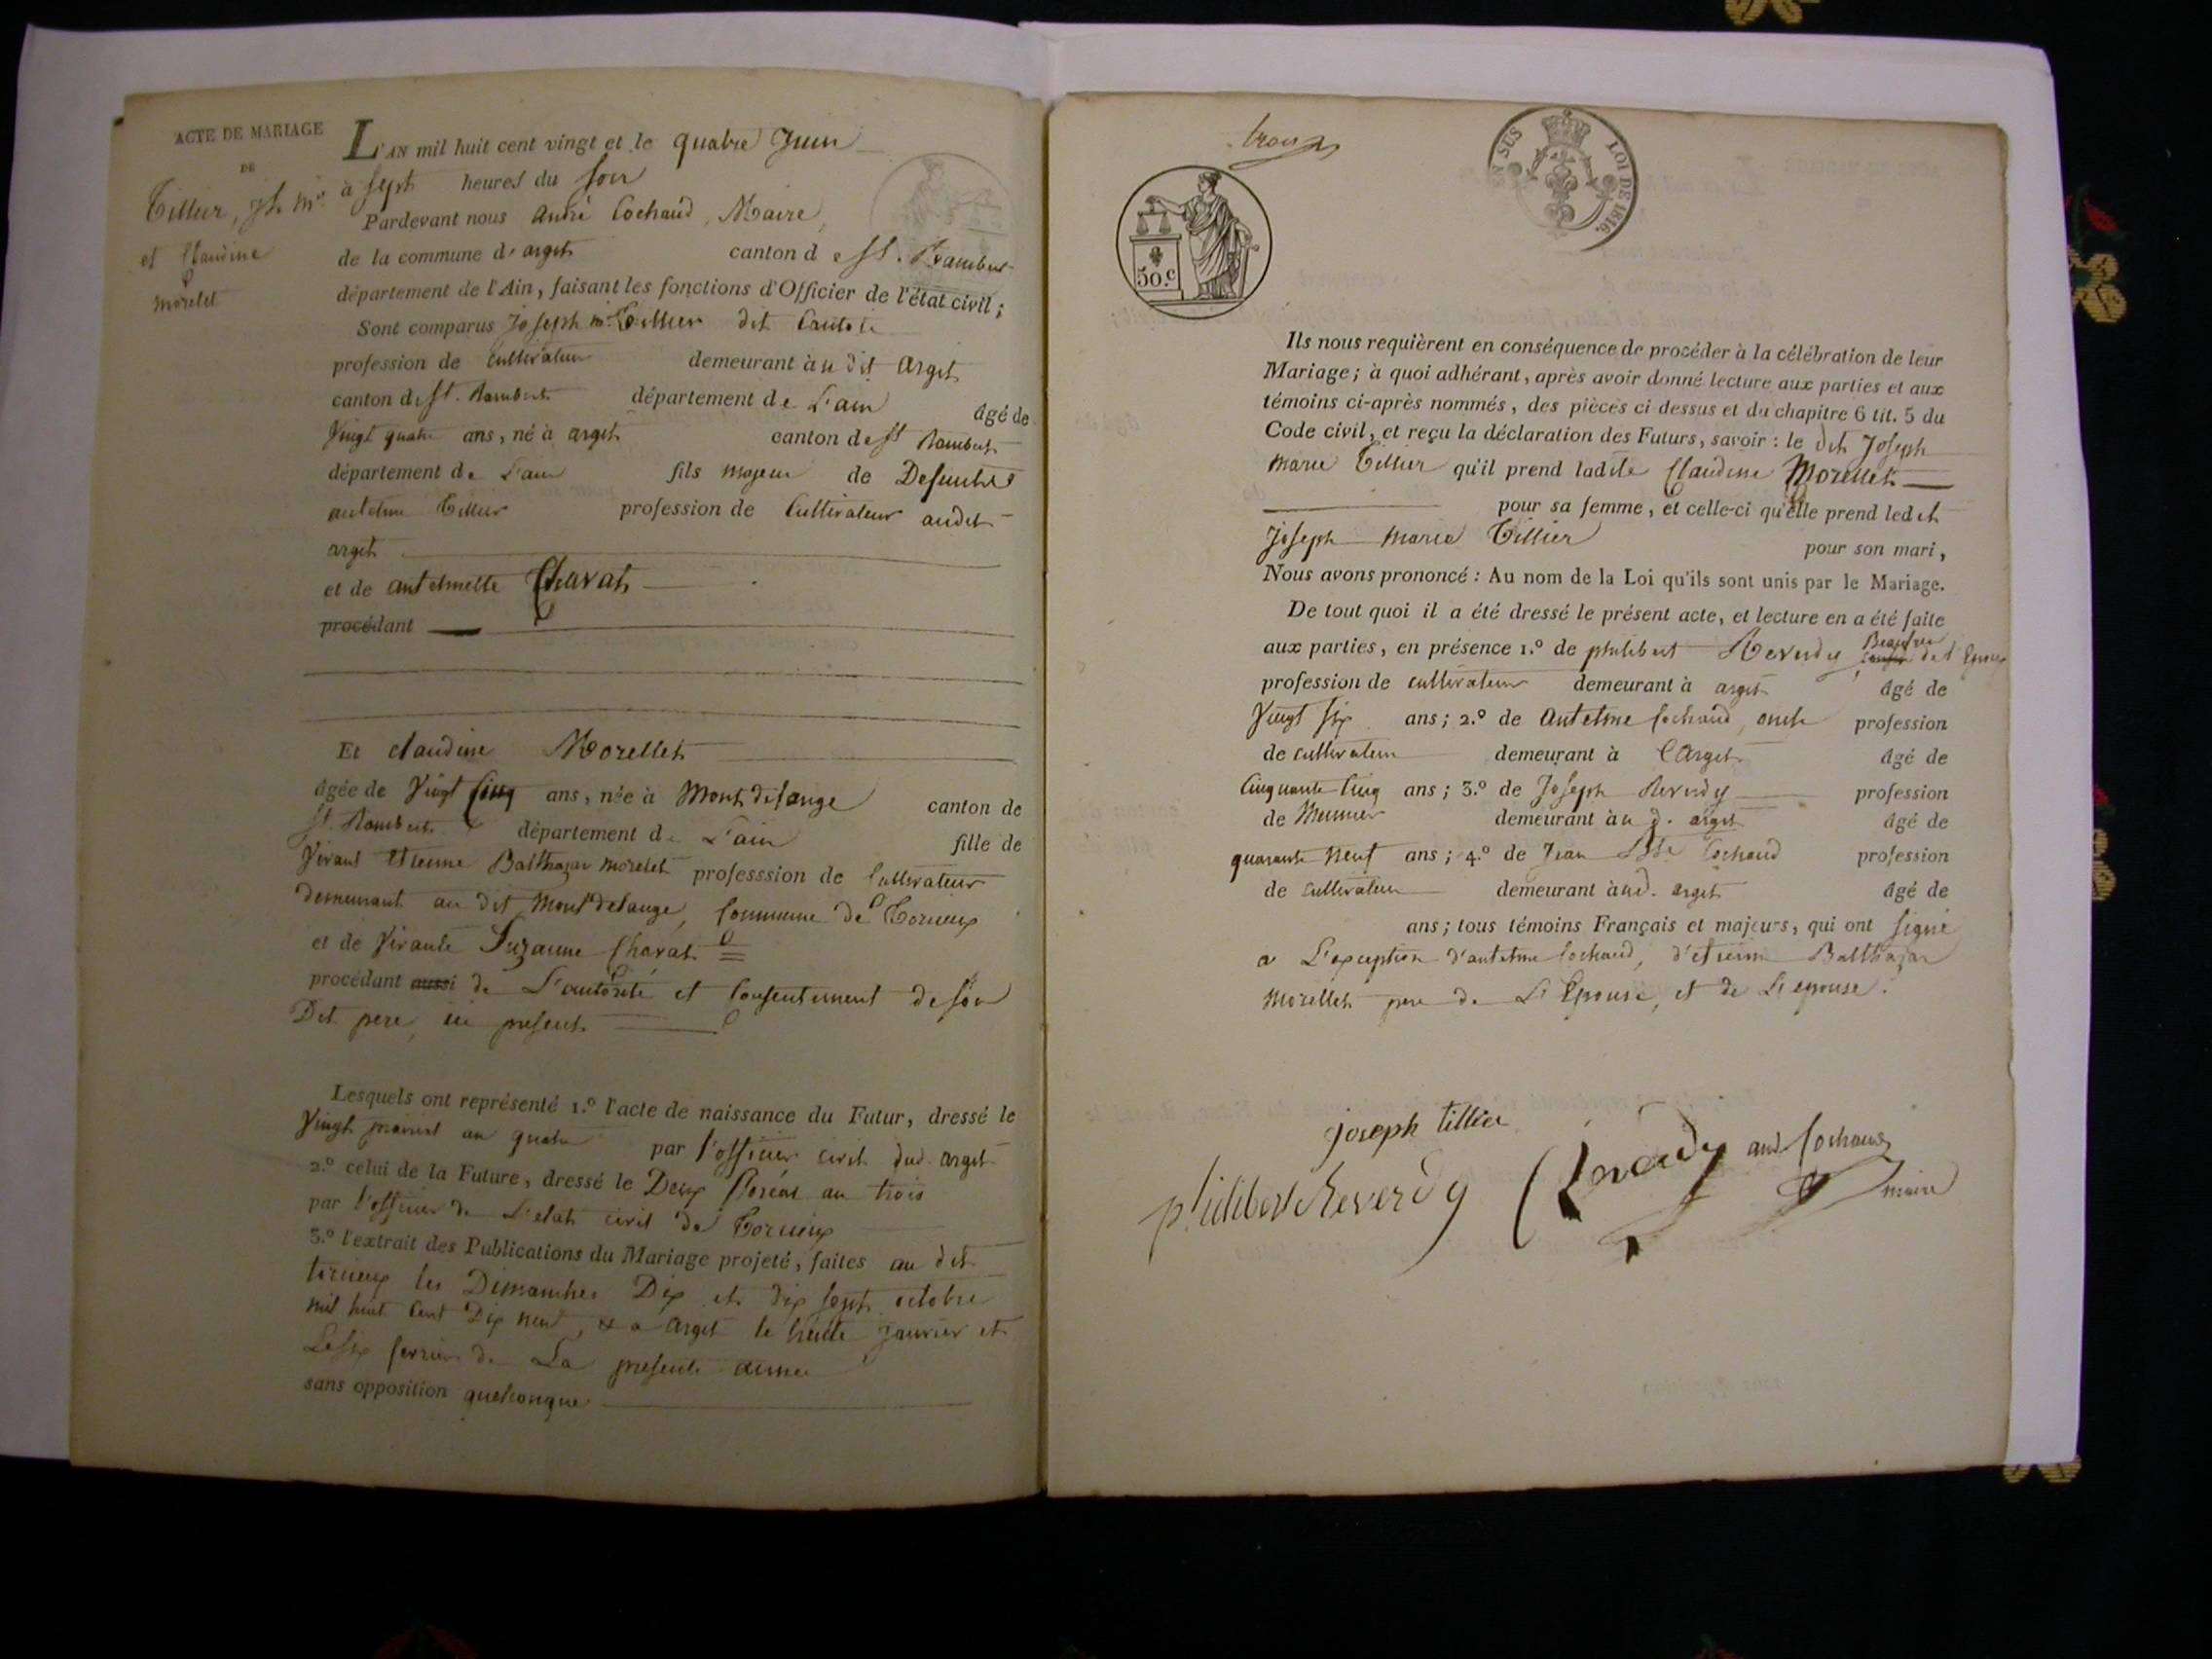 ACTE DE MARIAGE
DE
Tillier, Jh. Mie.
et Claudine
Morelet
L'AN mil huit cent vingt et le quatre Juin
à sept heures du soir
Pardevant nous André Cochaud, Maire
de la commune d'arget canton de St. Rambert
département de l'Ain, faisant les fonctions d'Officier de l'état civil;
Sont comparus Joseph m. Tillier dit
profession de cultivateur demeurant àu dit Arget
canton de St. Rambert département de L'ain âgé de
Vingt quatre ans, né à arget canton de St Rambert
département de L'ain fils majeur de Defunts
antelme Tillier profession de Cultivateur audit
arget
et de antelmette Charat
procédant
Et claudine Morellet
âgée de Vingt Cinq ans, née à Mont delange canton de
St. Rambert département de L'ain fille de
Vivant Etienne Balthazar morelet professsion de Cultivateur
demeurant au dit Mont delange, Commune de Torcieux
et de Vivante Suzanne Charat
procédant aussi de L'autorité et Consentement de son
Dit pere, ici present
Lesquels ont représenté 1.º l'acte de naissance du Futur, dressé le
Vingt prairial an quatre par l'officier civil dud. arget
2.º celui de la Future, dressé le Deux floréal an trois
par l'officier de L'etat civil de Torcieux
3.º l'extrait des Publications du Mariage projeté, faites au dit
torcieux les Dimanches Dix et dix sept octobre
mil huit Cent Dix neuf, & a Arget le trente Janvier et
Le six fevrier de La presente année
sans opposition quelconque
EN SUS LOI DE 1816.
50.c
Ils nous requièrent en conséquence de procéder à la célébration de leur
Mariage; à quoi adhérant, après avoir donné lecture aux parties et aux
témoins ci-après nommés, des pièces ci dessus et du chapitre 6 tit. 5 du
Code civil, et reçu la déclaration des Futurs, savoir: le dit Joseph
Marie Tillier qu'il prend ladite Claudine Morellet
pour sa femme, et celle-ci qu'elle prend ledit
Joseph Marie Tillier pour son mari,
Nous avons prononcé: Au nom de la Loi qu'ils sont unis par le Mariage.
De tout quoi il a été dressé le présent acte, et lecture en a été faite
aux parties, en présence 1.º de philibert Reverdy Beaufrere de l'Epoux
profession de cultivateur demeurant à arget âgé de
Vingt Six ans; 2.º de Antelme Cochaud, oncle profession
de cultivateur demeurant à Arget âgé de
Cinquante Cinq ans; 3.º de Joseph Reverdy profession
de Meunier demeurant àu d. arget âgé de
quarante Neuf ans; 4.º de Jean Bte Cochaud profession
de Cultivateur demeurant àud. arget âgé de
ans; tous témoins Français et majeurs, qui ont signé
a L'exception d'antelme Cochaud, d'etienne Balthazar
Morellet pere de L'Epouse, et de L'epouse.
joseph tillier
philibert Reverdy and. Cochaud
maire